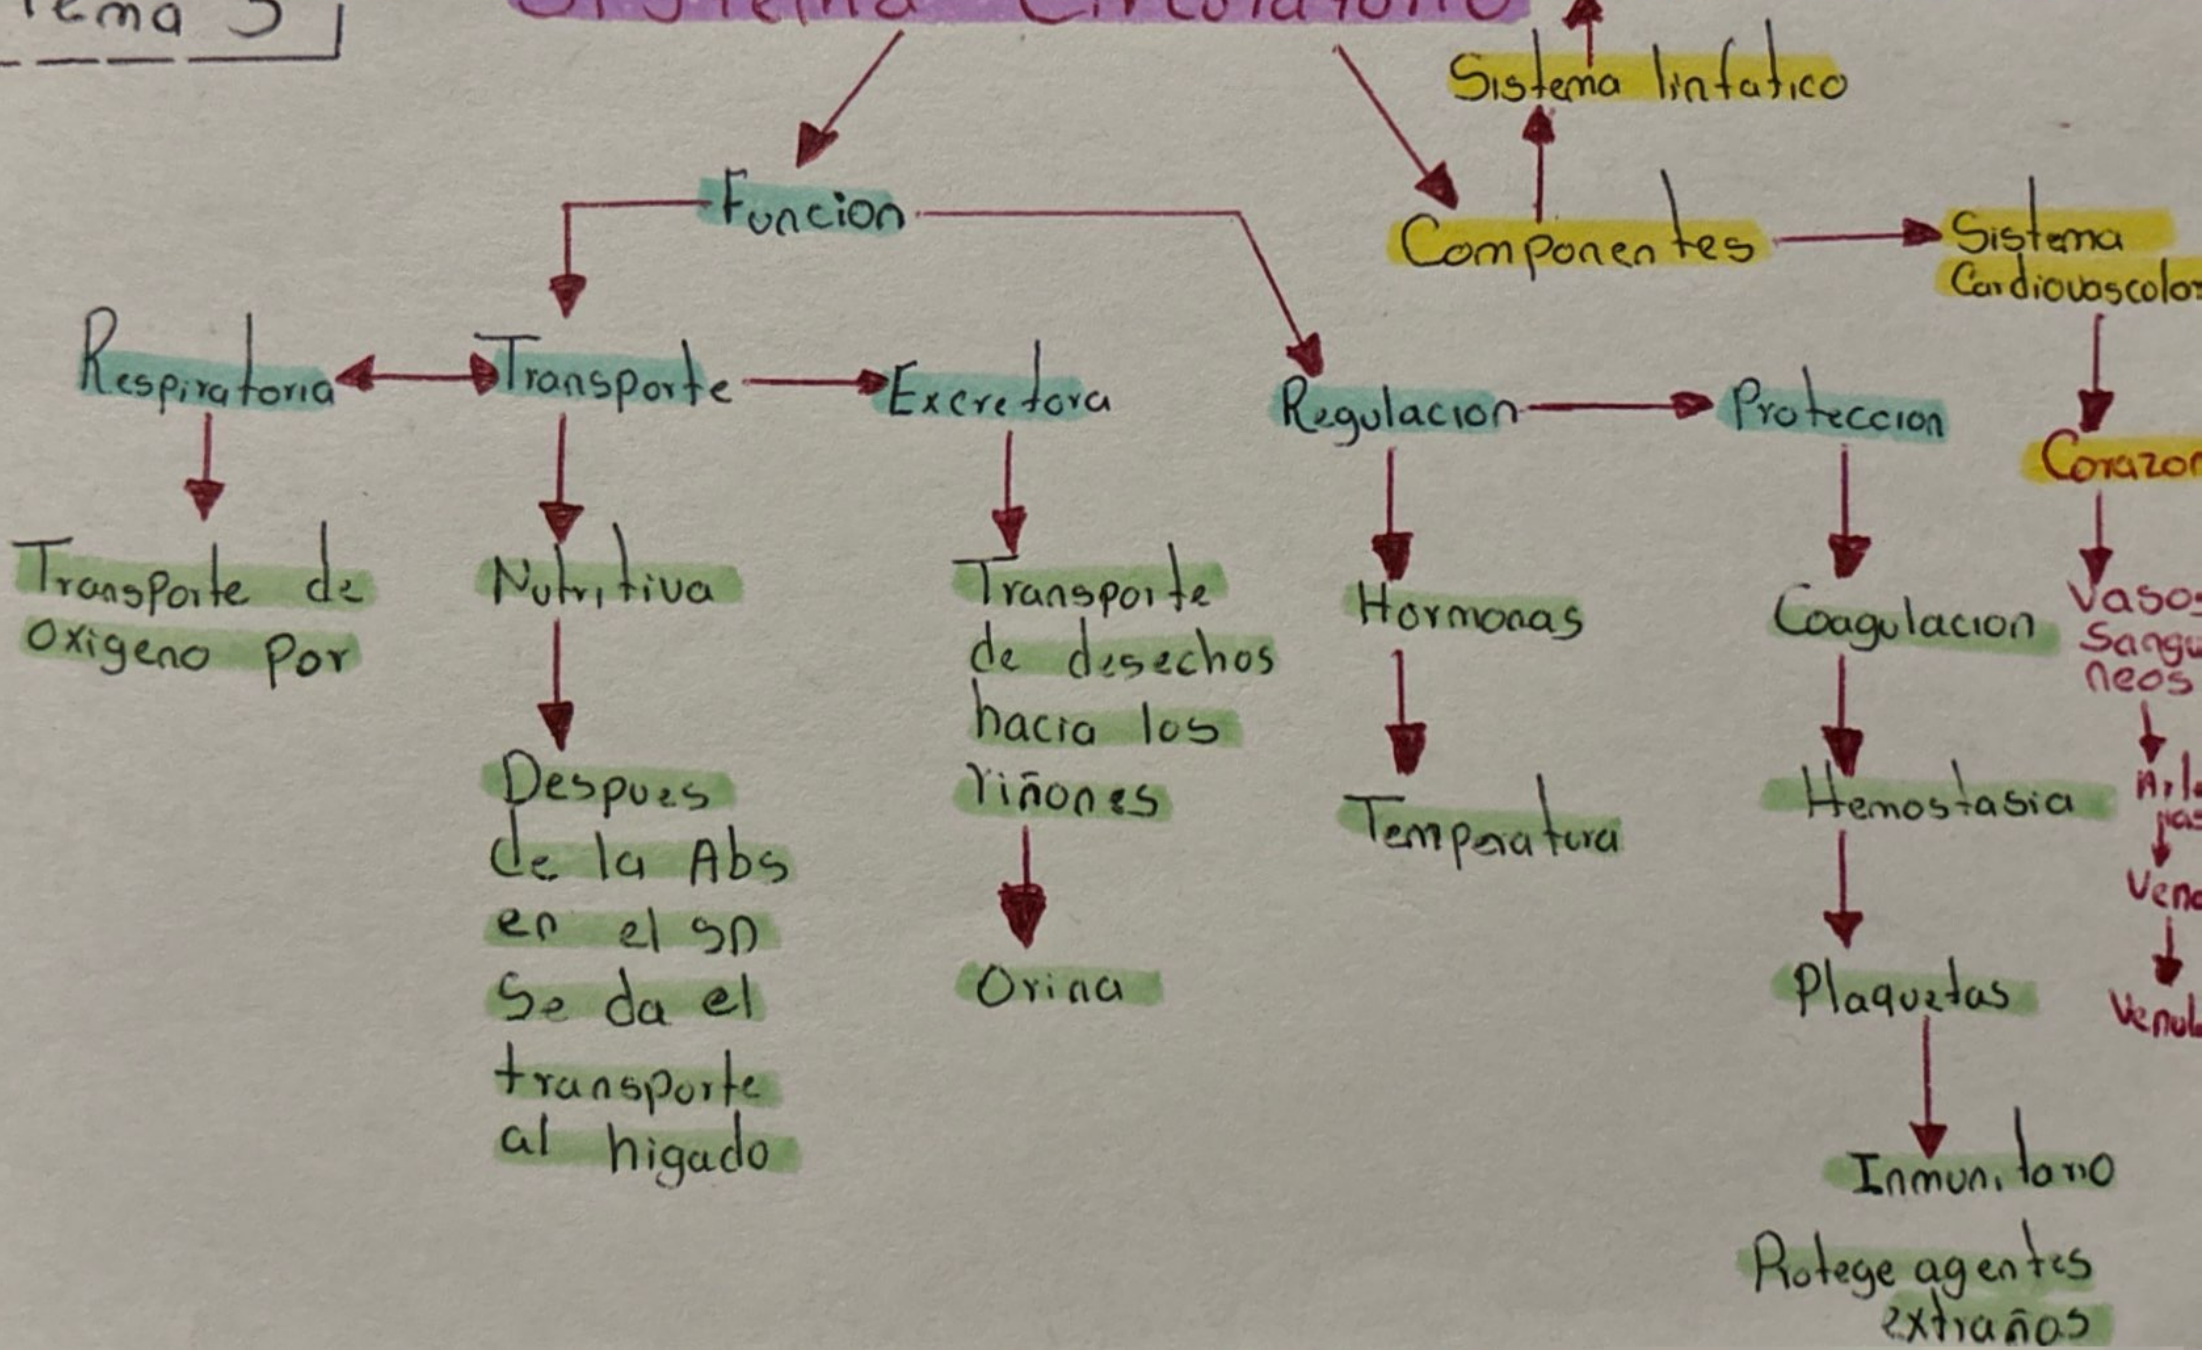 Tema 3
Sistema Circulatorio
Sistema linfatico
Funcion
Componentes
Sistema
Cardiovascolar
Respiratoria
Transporte
Excretora
Regulacion
Proteccion
Corazon
Transporte de
oxigeno por
Nutritiva
Despues
de la Abs
en el SD
Se da el
transporte
al higado
Transporte
de desechos
hacia los
riñones
Orina
Hormonas
Temperatura
Coagulacion
Hemostasia
Plaquetas
Inmunitario
Protege agentes
extraños
Vasos
Sangu
neos
Vena
Venul